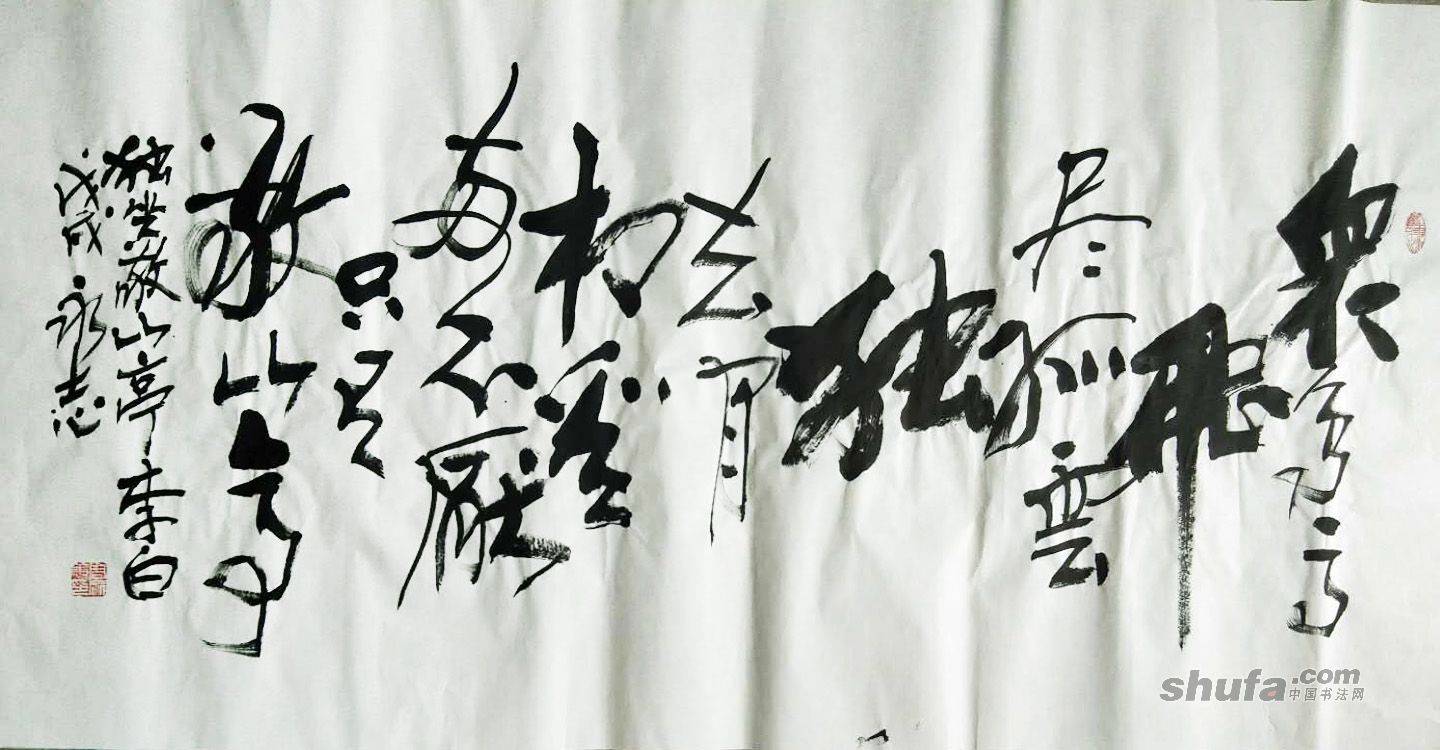 眾鸟高
飛
尽孤雲
独
去闲
相看
两不厭
只有
敬山亭
独坐敬山亭李白
戊戌永志
shufa.com
中国书法网